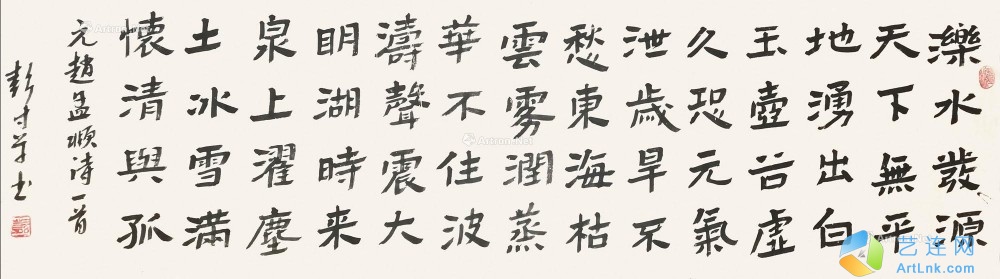 濼水發源
天下無平
地湧出白
玉壺谷虛
久恐元氣
泄歲旱不
愁東海枯
雲雾潤蒸
華不住波
濤聲震大
眀湖時来
泉上濯塵
土冰雪滿
懷清與孤
元趙孟頫诗一首
彭书
艺连网
ArtLnk.com